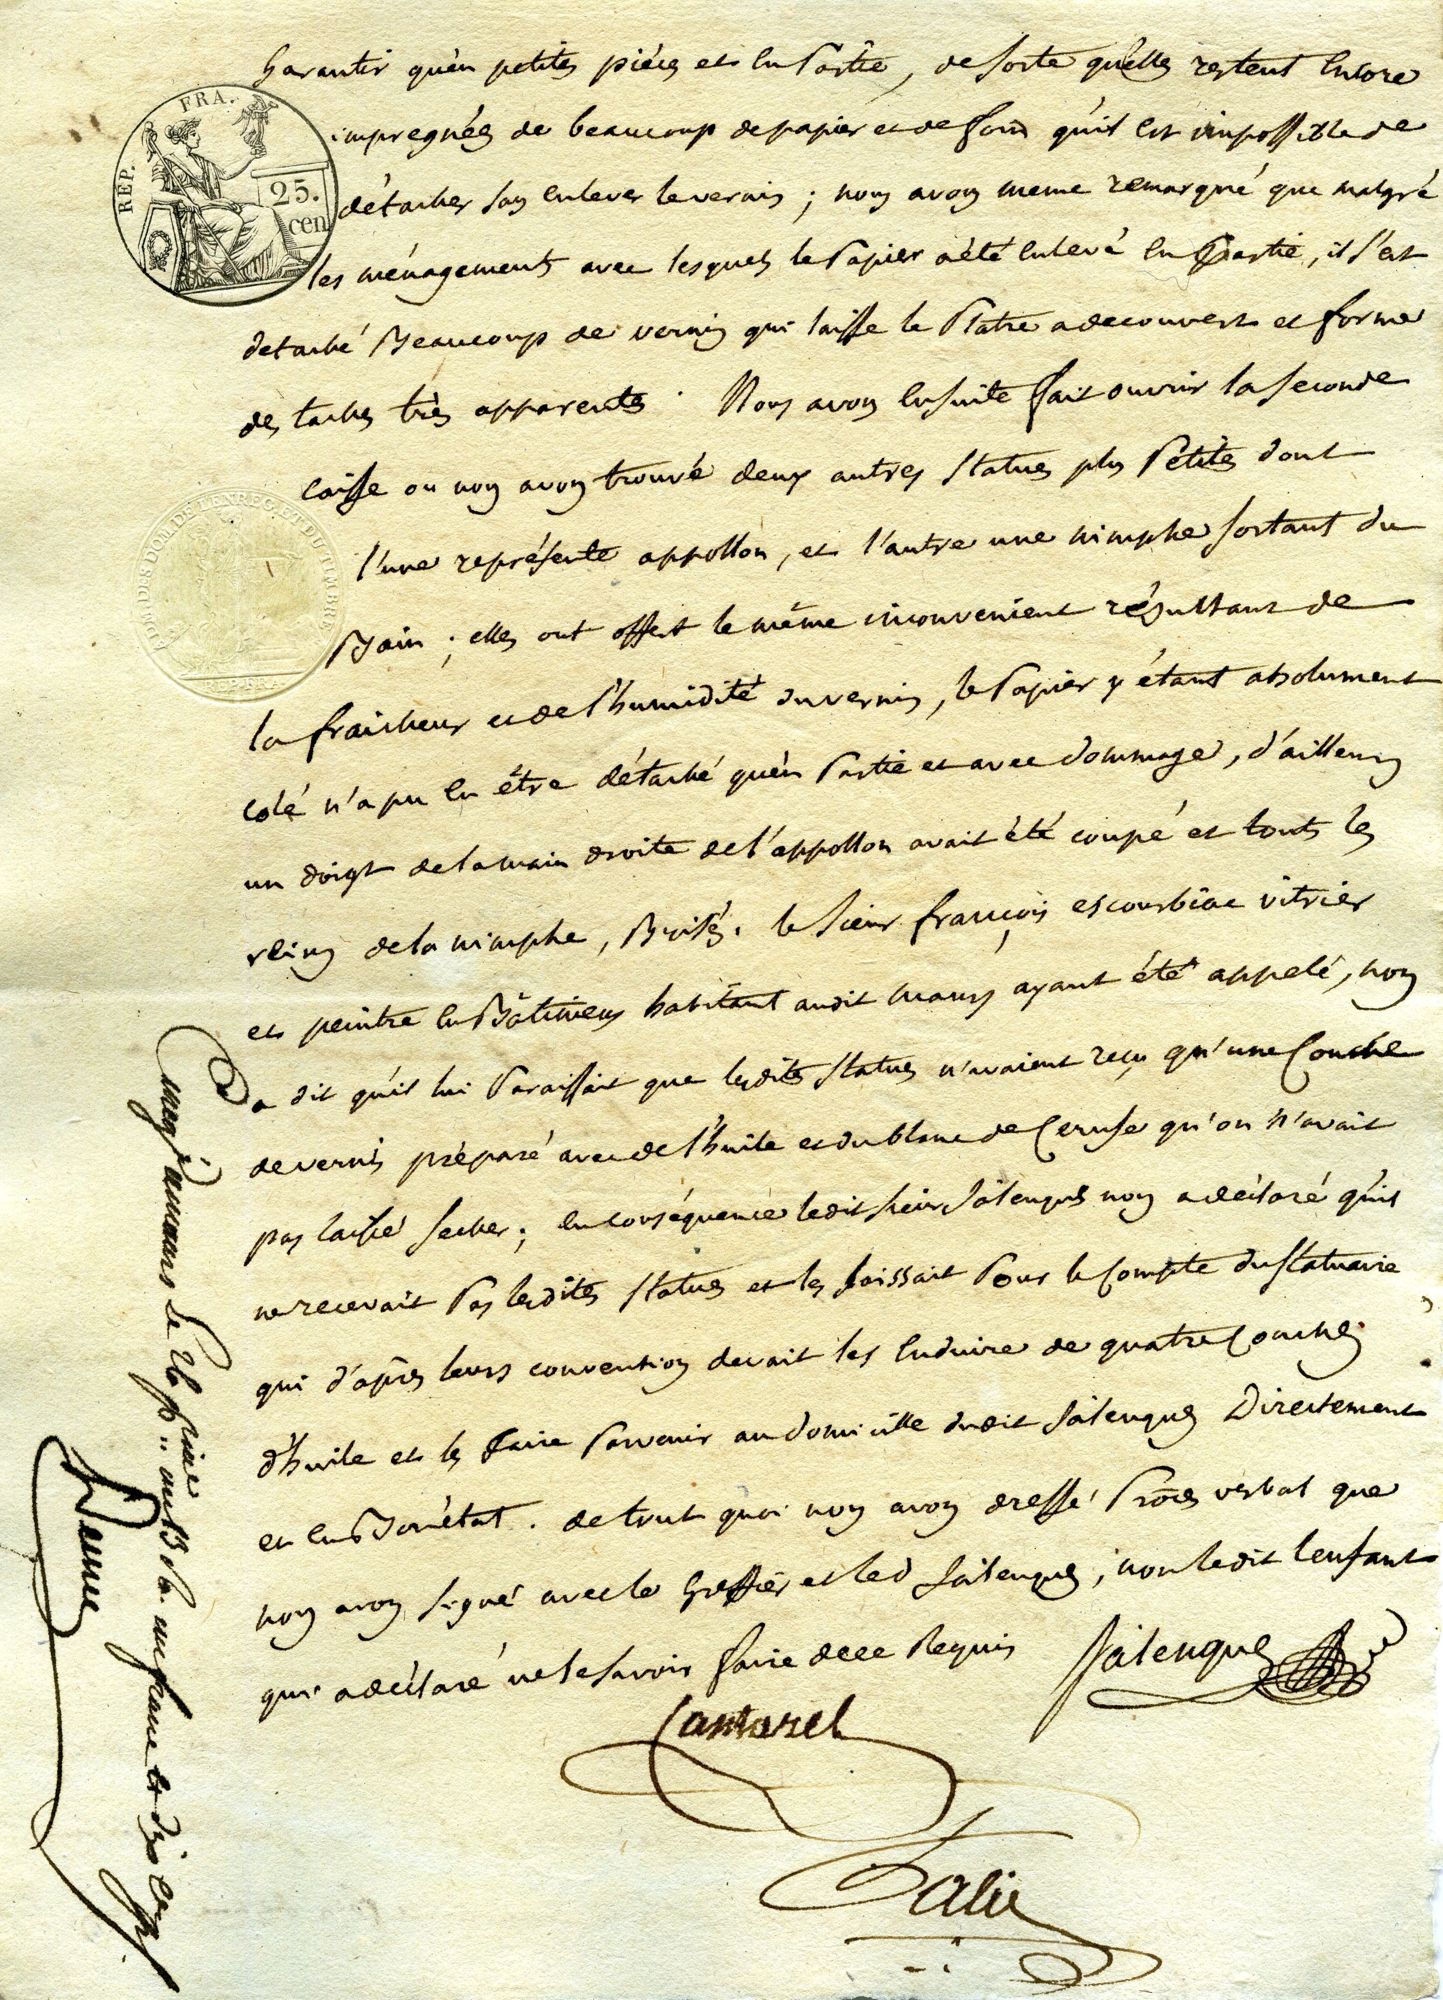 REP. FRA.
25.
cen
ADM. DES DOM. DE L'ENREG. ET DU TIMBRE
REP. FRA.
Garantir qu'en petites pièces et en Partie, de sorte qu'elles restent Encore
impregnées de beaucoup de papier et de foin qu'il est impossible de
détacher sans enlever le vernis ; nous avons meme remarqué que malgré
les ménagements avec lesquels le Papier a été enlevé en Partie, il s'est
detaché Beaucoup de vernis qui laisse le Platre a decouvert et forme
des taches très apparentes. Nous avons Ensuite fait ouvrir la seconde
caisse ou nous avons trouvé deux autres statues plus Petites dont
l'une représente appollon, et l'autre une nimphe sortant du
Bain ; elles ont offert le même inconvenient résultant de
la fraicheur et de l'humidité du vernis, le Papier y étant absolument
colé n'a pu en être détaché qu'en Partie et avec dommage, d'ailleurs
un doigt de la main droite de l'appollon avait été coupé et touts les
reins de la nimphe, Brisés. le sieur françois escourbiac vitrier
et peintre en Bâtimens habitant audit maurs ayant été appelé, nous
a dit qu'il lui Paraissait que lesdites statues n'avaient reçu qu'une Couche
de vernis préparé avec de l'huile et du blanc de Ceruse qu'on n'avait
pas laissé secher ; en conséquence ledit sieur Salenques nous a déclaré qu'il
ne recevait Pas lesdites statues et les laissait Pour le Compte du statuaire
qui d'après leurs conventions devait les Enduire de quatre Couches
d'huile et les faire Parvenir au domicille dudit Salenques Directement
et en Bon état. de tout quoi nous avons dressé Procès verbal que
nous avons signé avec le Greffier et led Salenques, non ledit Lenfant
qui a déclaré ne le savoir faire de ce Requis
Salenques
Cantarel
Enreg. à maurs le 26 un franc et dix cens